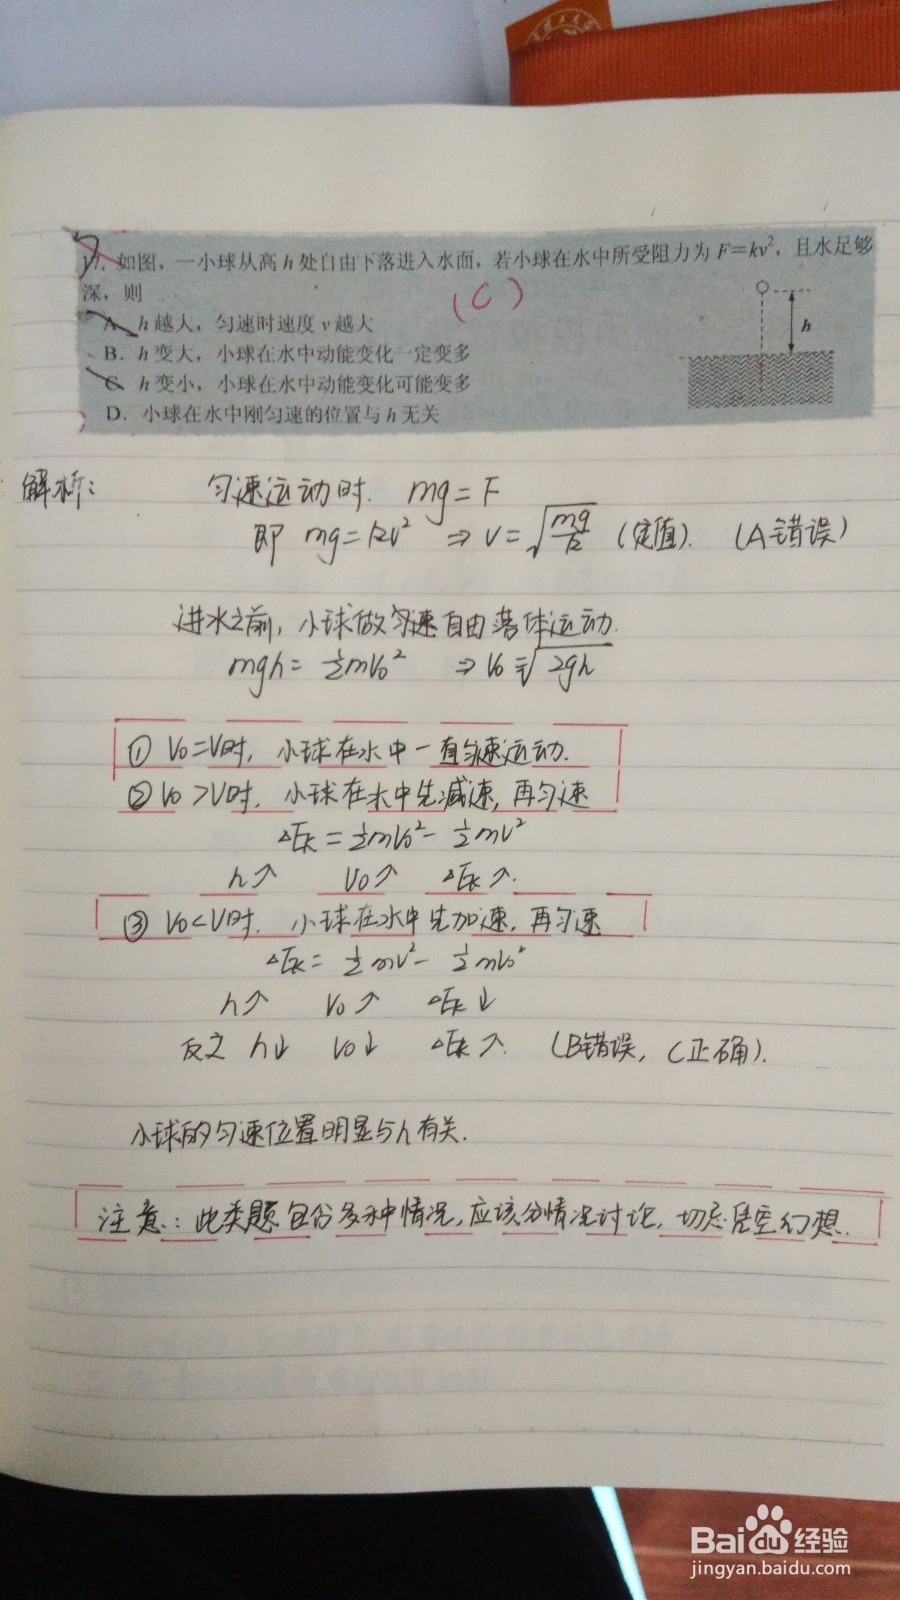 17. 如图，一小球从高h处自由下落进入水面，若小球在水中所受阻力为F=kv²，且水足够
深，则
(C)
A. h越大，匀速时速度v越大
h
B. h变大，小球在水中动能变化一定变多
C. h变小，小球在水中动能变化可能变多
D. 小球在水中刚匀速的位置与h无关
解析： 匀速运动时. mg=F
即 mg=kv² ⇒ v=√(mg/k) (定值). (A错误)
进水之前，小球做匀速自由落体运动.
mgh=½mv₀² ⇒ v₀=√2gh
① v₀=v时，小球在水中一直匀速运动.
② v₀>v时，小球在水中先减速，再匀速
ΔEk=½mv₀²-½mv²
h↗ v₀↗ ΔEk↗.
③ v₀<v时. 小球在水中先加速，再匀速
ΔEk=½mv²-½mv₀²
h↗ v₀↗ ΔEk↓
反之 h↓ v₀↓ ΔEk↗. (B错误，C正确).
小球的匀速位置明显与h有关.
注意：此类题包含多种情况，应该分情况讨论，切忌凭空幻想.
Baidu经验
jingyan.baidu.com